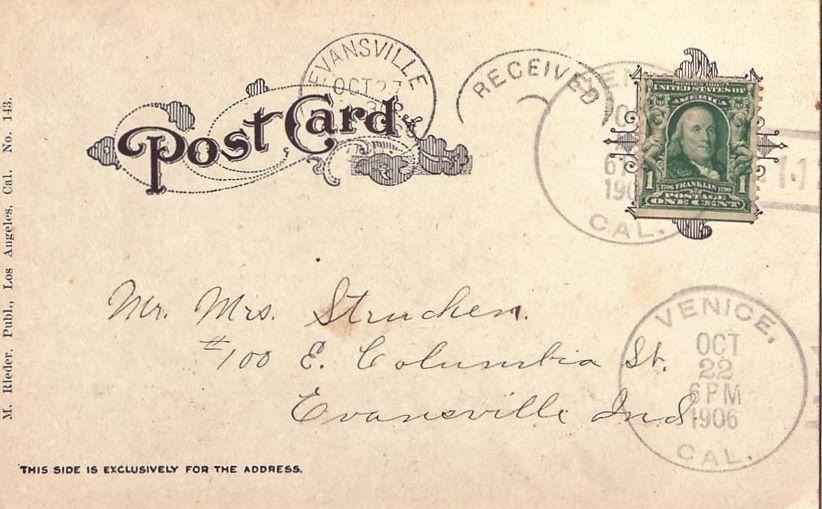 EVANSVILLE
OCT 27
RECEIVED
CAL.
UNITED STATES OF
AMERICA
1 FRANKLIN 1
POSTAGE
ONE CENT
Post Card
M. Rieder, Publ., Los Angeles, Cal. No. 143.
Mr. Mrs. Struchen.
#100 E. Columbia St.
Evansville Ind.
VENICE,
OCT
22
6 PM
1906
CAL.
THIS SIDE IS EXCLUSIVELY FOR THE ADDRESS.